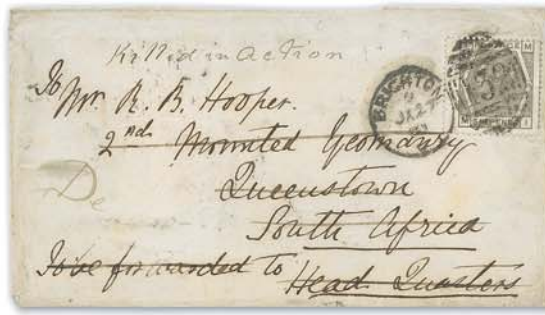 Killed in Action
To
Mr. R. B. Hooper.
2nd Mounted Yeomanry
Queenstown
South Africa
To be forwarded to Head Quarters
De
BRIGHTON
JA 27
M
M I